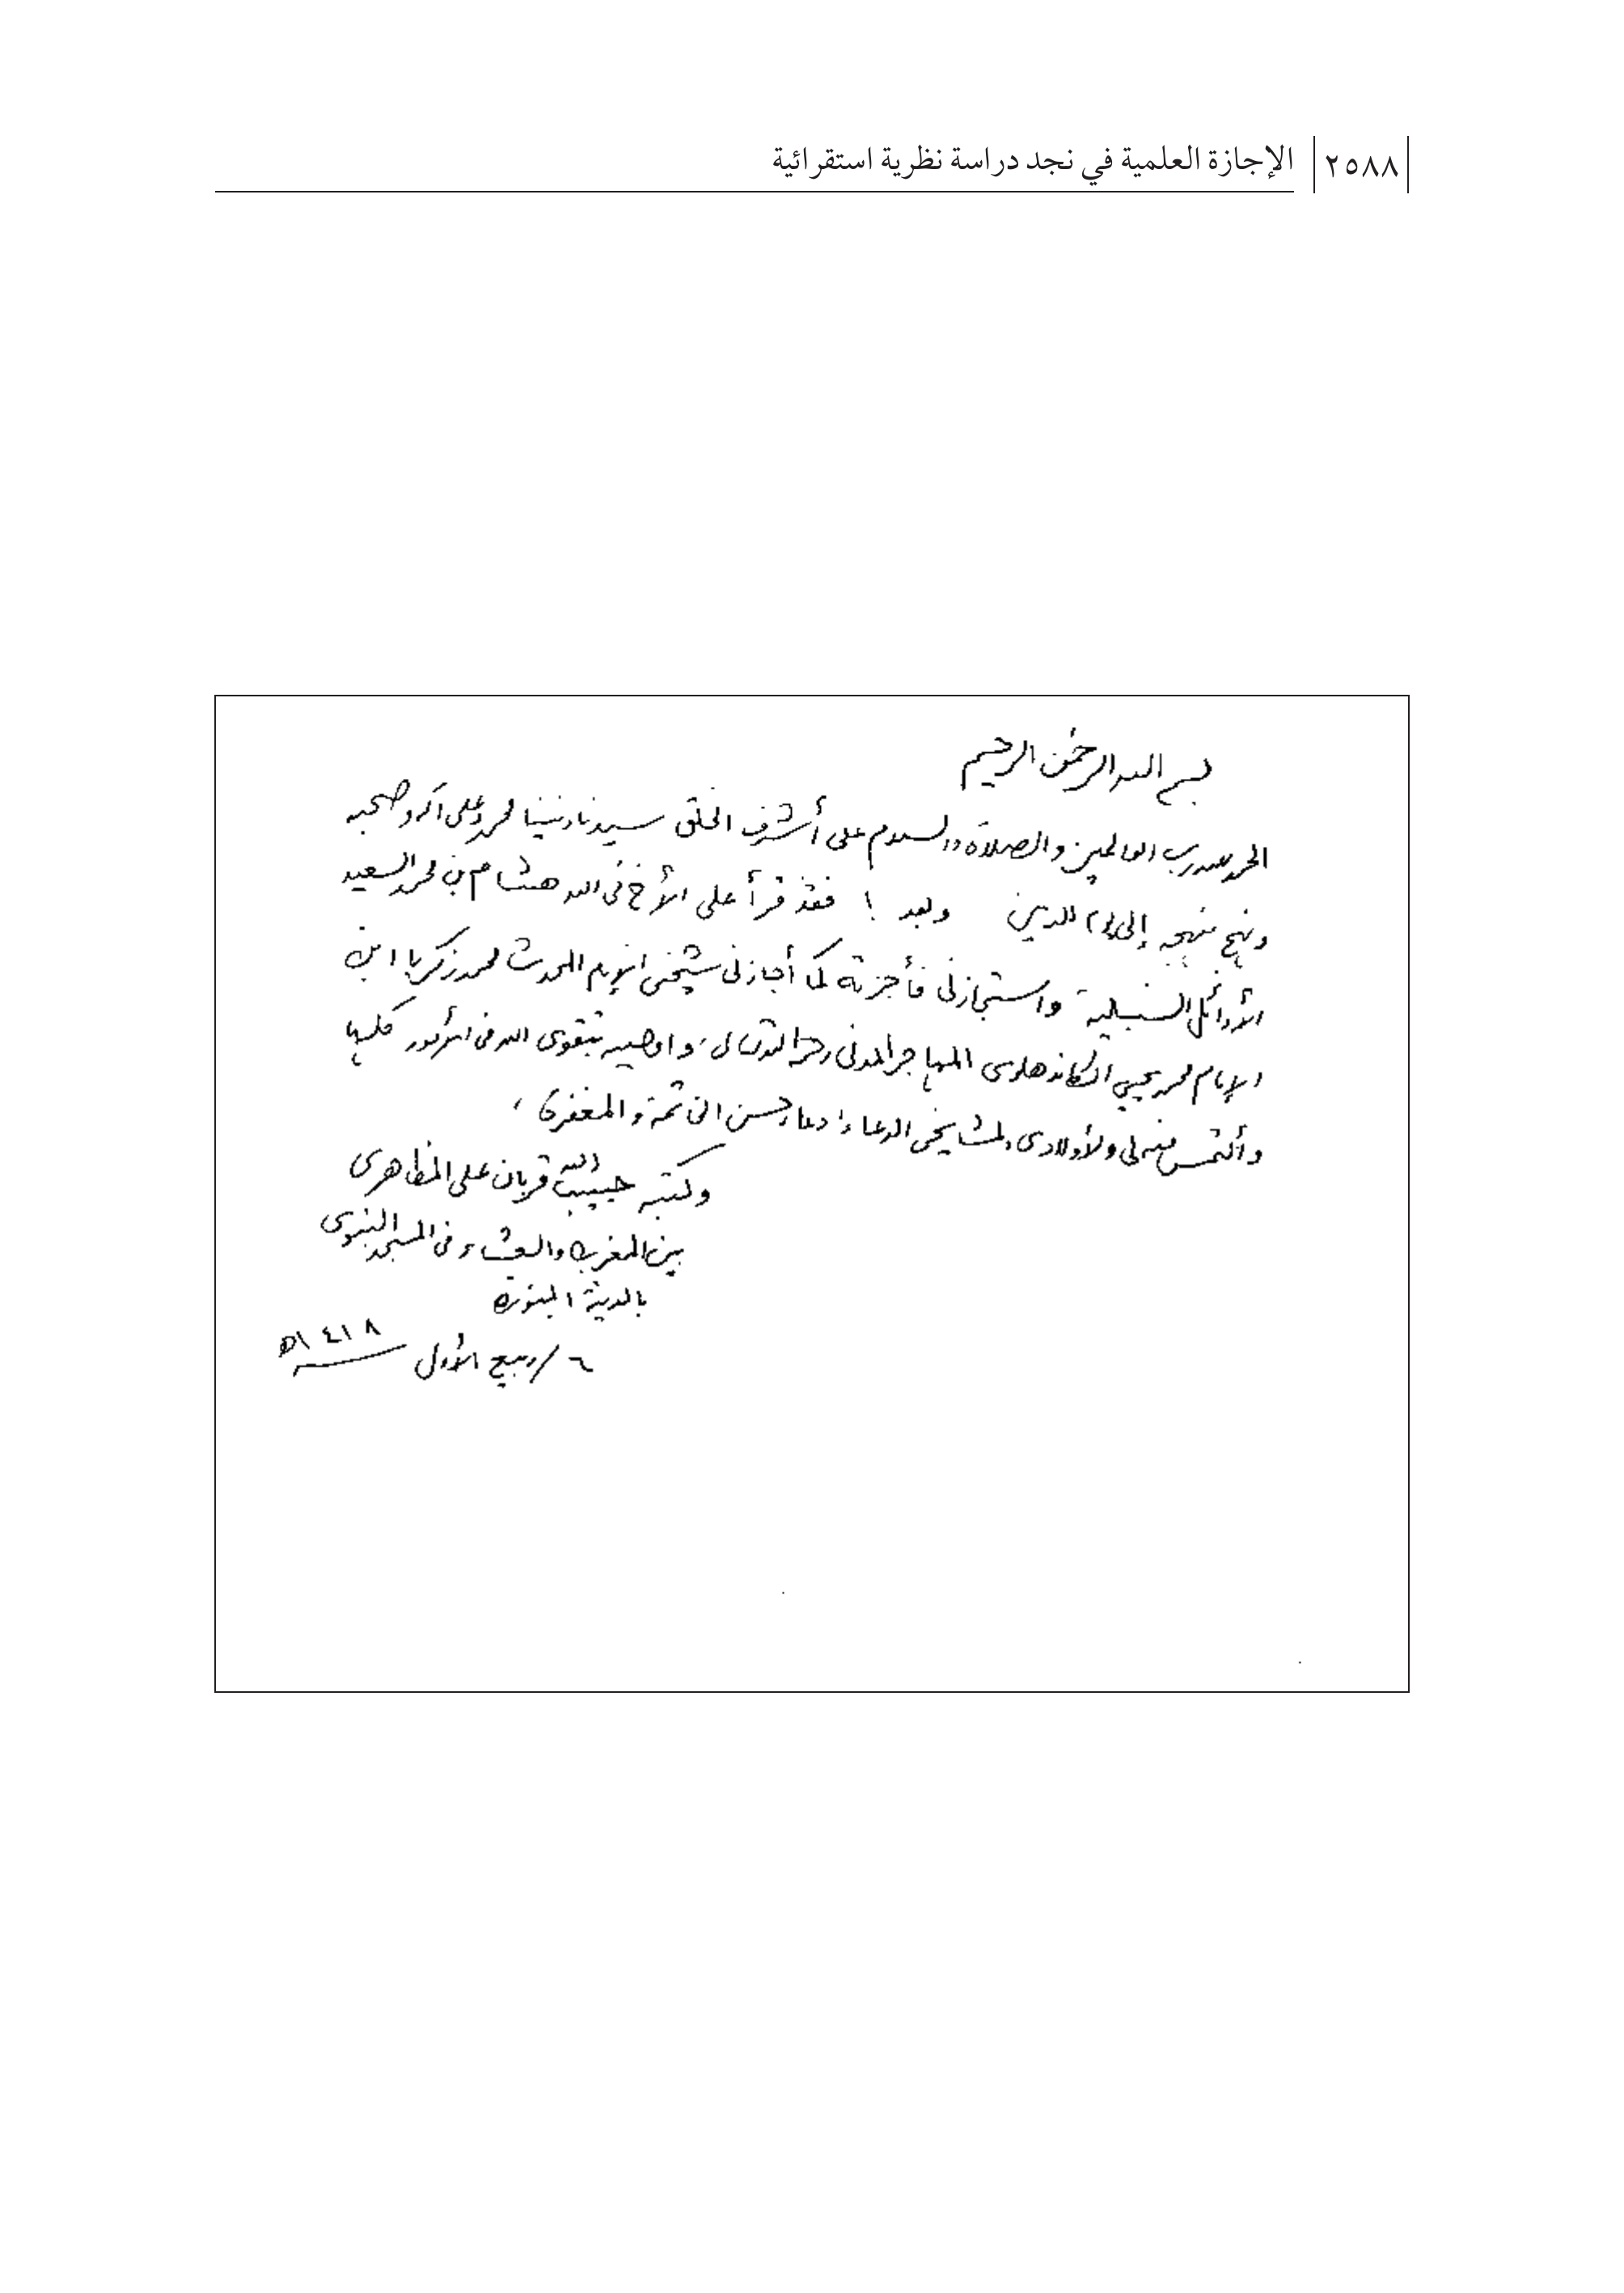 ٢٥٨٨ الإجازة العلمية في نجد دراسة نظرية استقرائية
بسم الله الرحمن الرحيم
الحمد لله رب العالمين والصلاة والسلام على أشرف الخلق سيدنا ونبينا محمد وعلى آله وصحبه
ونهج منهجه إلى يوم الدين وبعد ! فقد قرأ علي الأخ في الله هشام بن محمد السعيد
الأوائل السنبلية واستجازني فأجزته كما أجازني شيخي الإمام المحدث محمد زكريا ابن
الإمام محمد يحيى الكاندهلوي المهاجر المدني رحمه الله تعالى، وأوصيه بتقوى الله في الأمور كلها
وألتمس منه لي ولأولادي ولمشايخي الدعاء دعاء حسن الخاتمة والمغفرة ،
وكتبه حبيب الله قربان علي المظاهري
بين المغرب والعشاء في المسجد النبوي
بالمدينة المنورة
٦ / ربيع الأول ١٤١٨هـ